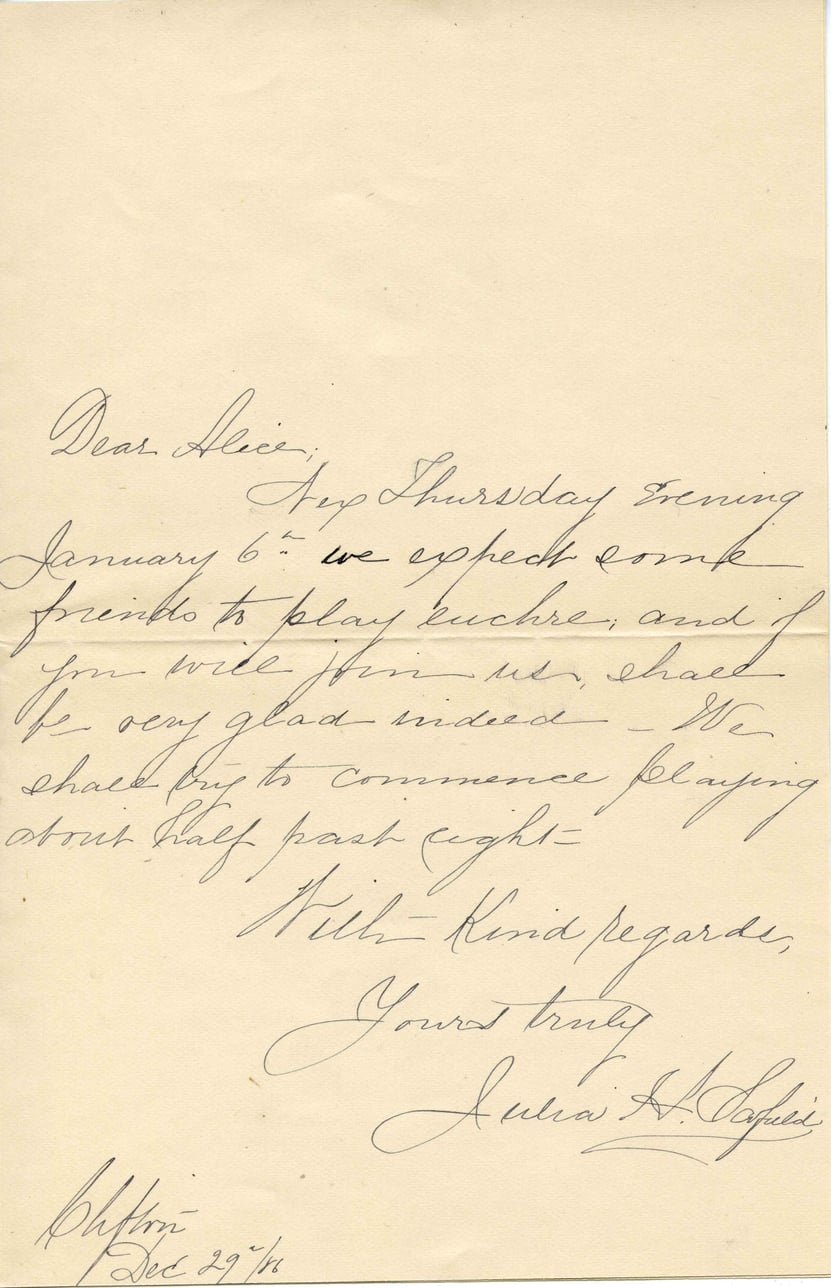 Dear Alice,
Nex Thursday Evening
January 6th we expect some
friends to play euchre, and if
you will join us, shall
be very glad indeed - We
shall try to commence playing
about half past eight =
With Kind regards,
Yours truly
Julia H.
Clifton
Dec 29"/86